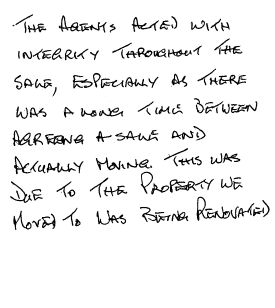 THE AGENTS ACTED WITH
INTEGRITY THROUGHOUT THE
SALE, ESPECIALLY AS THERE
WAS A LONG TIME BETWEEN
AGREEING A SALE AND
ACTUALLY MOVING. THIS WAS
DUE TO THE PROPERTY WE
MOVED TO WAS BEING RENOVATED